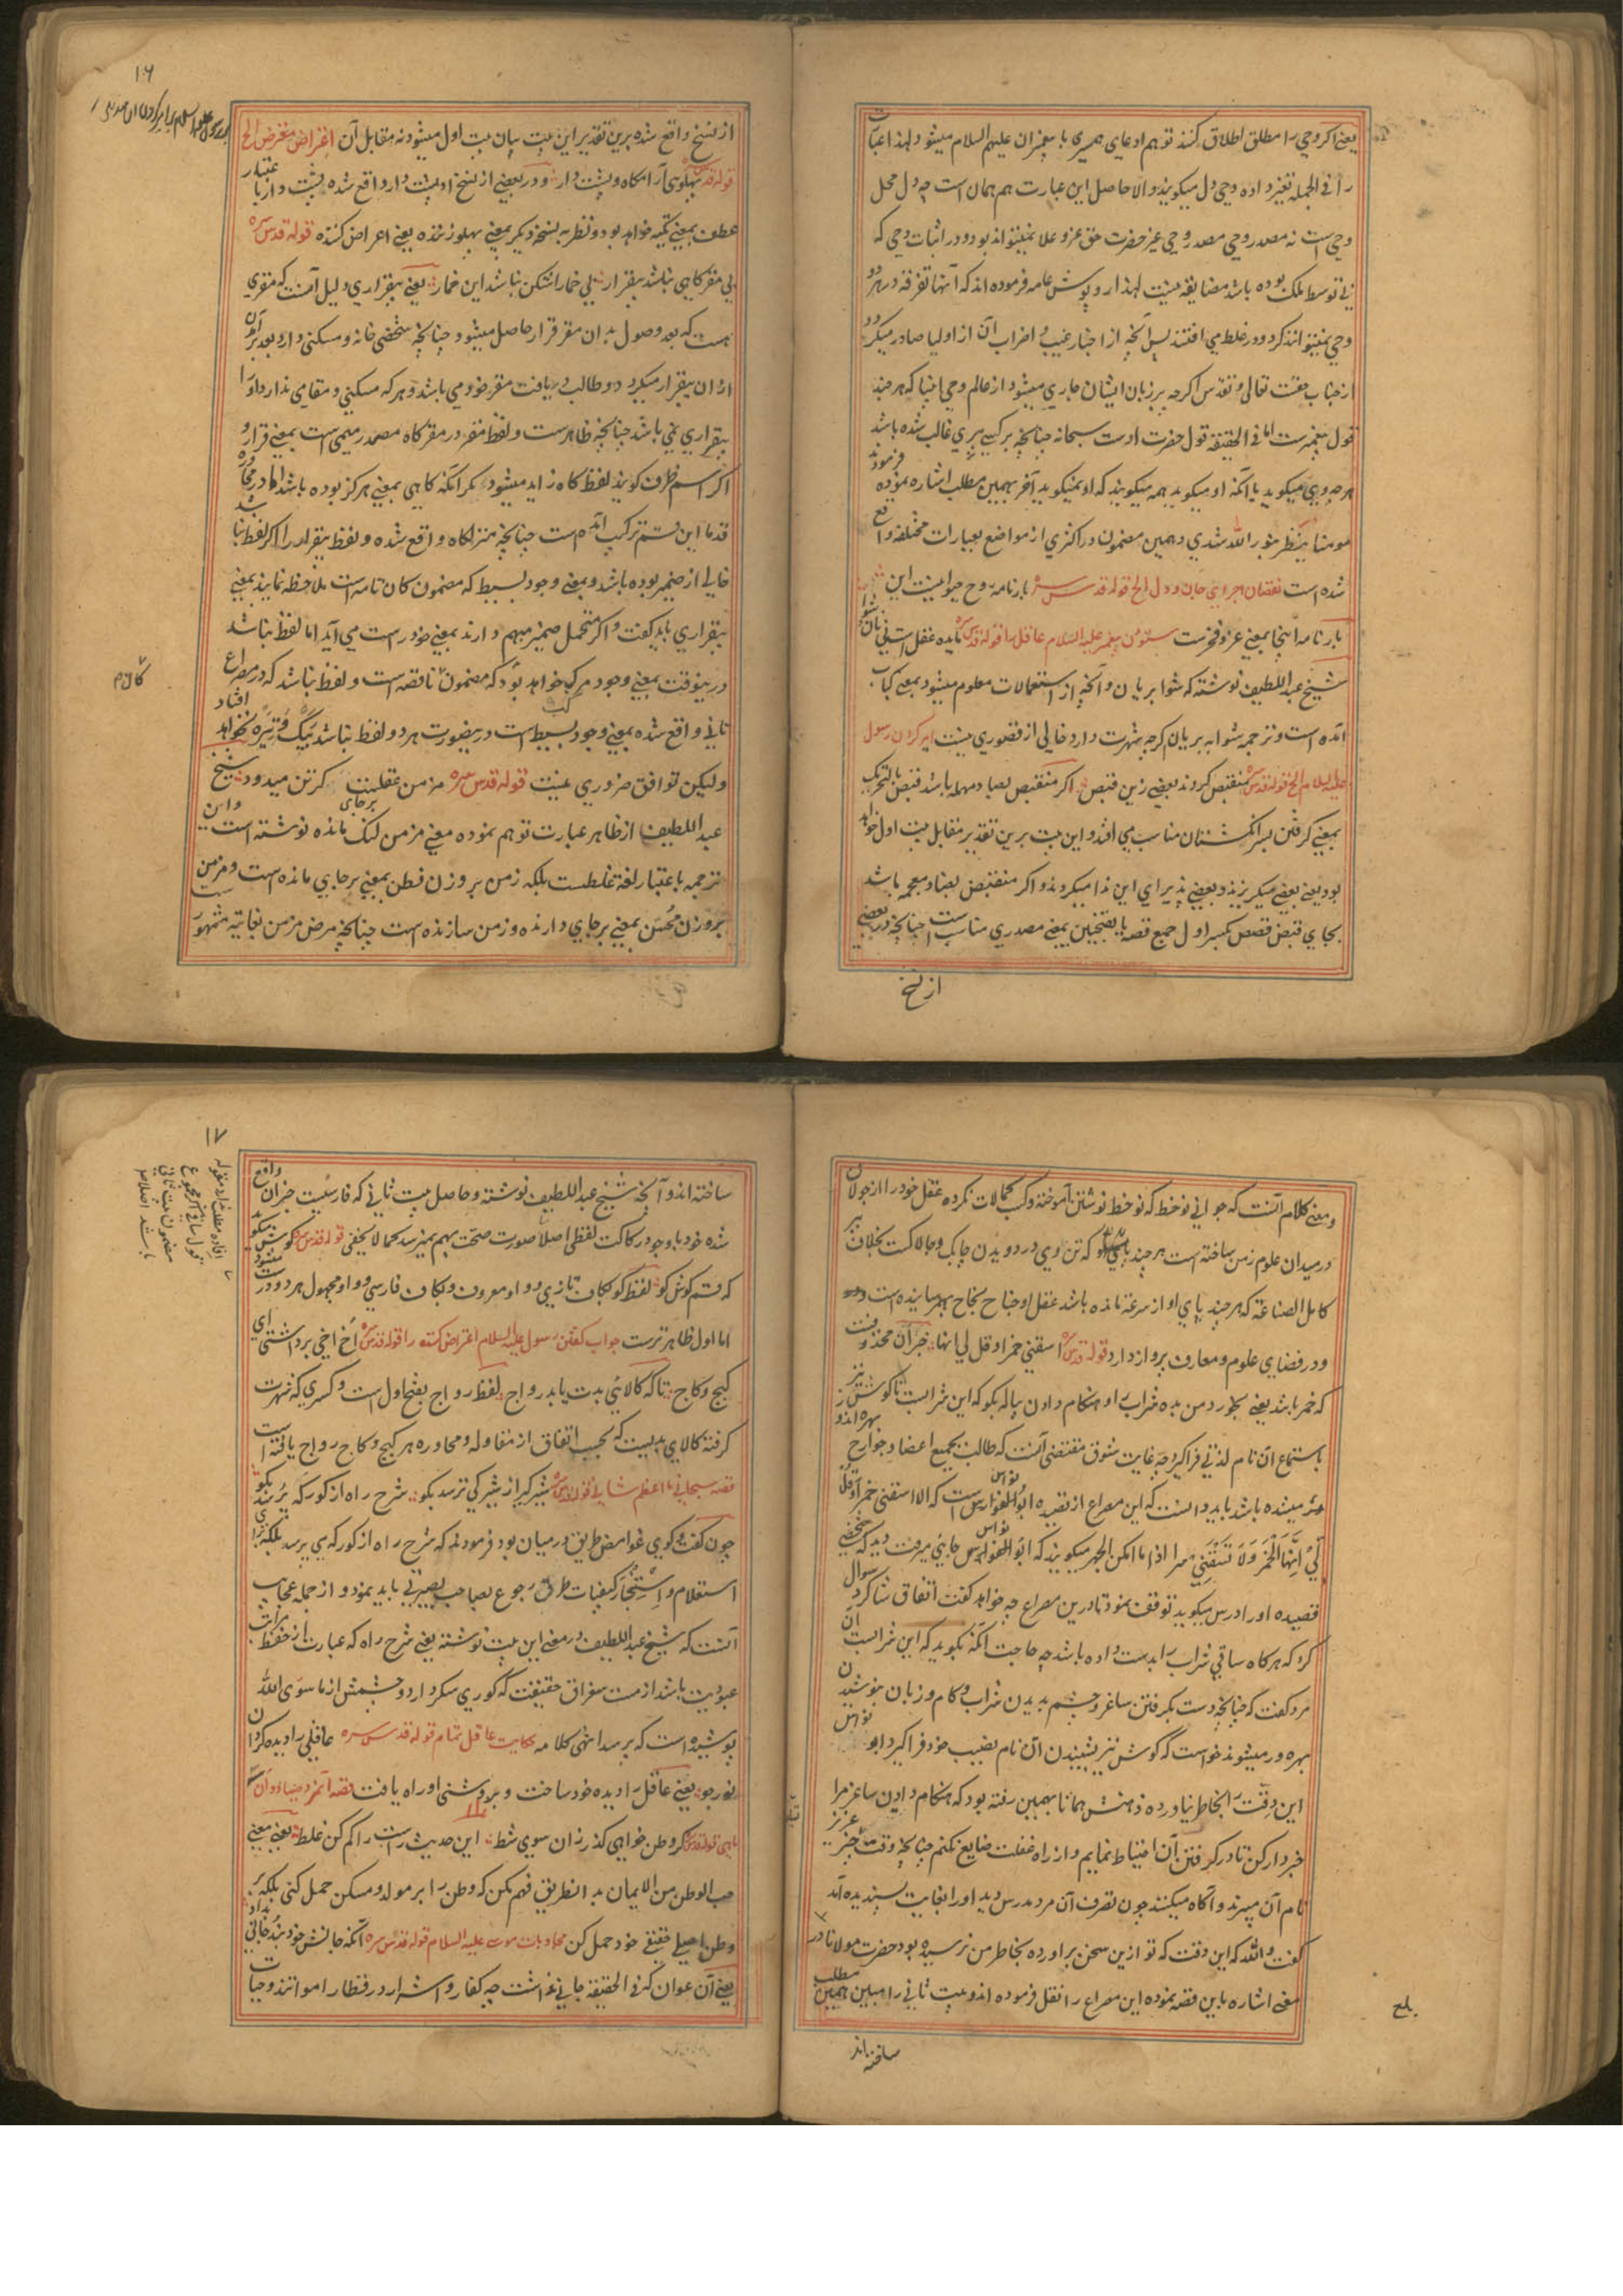 یعنی اگر وحی را مطلق اطلاق کنند توهم ادعای همسری با پیغمبران علیهم السلام میشود و لهذا عبارت
را فی الجمله تغیر داده وحی دل میگویند والا حاصل این عبارت هم همان است چه دل محل
وحی است نه مصدر وحی مصدر وحی غیر حضرت حق عز و علا نمیتواند بود و در اثبات وحی که
بی توسط ملک بوده باشد مضایقه نیست لهذا روپوش عامه فرموده اند که آنها تفرقه در هر دو
وحی نمیتوانند کرد و در غلط می افتند پس آنچه از اخبار غیب و اضراب آن از اولیا صادر میگردد
از جناب حضرت تعالی و تقدس اگرچه بر زبان ایشان جاری میشود از عالم وحی انبیا که هر چند
قول پیغمبرست اما فی الحقیقة قول حضرت اوست سبحانه چنانچه بر کسی پری غالب شده باشد
هرچه وی میگوید با آنکه او میگوید همه میگویند که او نمیگوید آخر بهمین مطلب اشاره نموده فرمودند
مومنا ینظر بنور الله شدی و همین مضمون در اکثری از مواضع بعبارات مختلفه واقع
شده است نقصان اجرای جان و دل الخ قوله قدس سره بارنامه روح حیوانیست این
بارنامه اینجا بمعنی عز و فخرست
شیخ عبد اللطیف نوشته که شوا بریان و آنچه از استعمالات معلوم میشود بمعنی کباب
آمده است و ترجمه شوا به بریان گرچه شهرت دارد خالی از قصوری نیست امیر کردن رسول
علیه السلام الخ قوله قدس سره منقبض گردند بعضی زین قبص اگر منقبص بصاد مهمله باشد قبص بالتحریک
بمعنی گرفتن بسر انگشتان مناسب می افتد و این بیت برین تقدیر مقابل بیت اول خواهد
بود یعنی بعضی میگریزند و بعضی پذیرای این ندا میگردند و اگر منقبض بضاد معجمه باشد
بجای قبض قصص بکسر اول جمع قصه یا بفتحین بمعنی مصدری مناسب است چنانچه در بعضی
از نسخ
۱۶
از نسخ واقع شده برین تقدیر این بیت بیان بیت اول میشود نه مقابل آن اعتراض معترض الخ
قوله قدس سره پهلوی آرامگاه و پشت دار و در بعضی از نسخ او پشت دار واقع شده پشت دار با اعتبار
عطف بمعنی تکیه خواهد بود و نظر به نسخه دیگر بمعنی پهلو زننده یعنی اعراض کننده قوله قدس سره
بی مقر گاهی نباشد بیقرار بی خمار اشکن نباشد این خمار یعنی بیقراری دلیل آنست که مقری
هست که بعد وصول بدان مقر قرار حاصل میشود چنانچه شخصی خانه و مسکنی دارد بعد برآمدن
از آن بیقرار میگردد و طالب دریافت مقر خود می باشد و هر که مسکنی و مقامی ندارد او را
بیقراری نمی باشد چنانچه ظاهرست و لفظ مقر در مقرگاه مصدر میمی است بمعنی قرار و
اگر اسم ظرف گویند لفظ گاه زاید میشود مگر آنکه گاهی بمعنی هرگز بوده باشد اما در محاوره
قدما این قسم ترکیب آمده است چنانچه منزلگاه واقع شده و لفظ بیقرار را اگر لفظ نباشد
خالی از ضمیر بوده باشد و بمعنی وجود بسیط که مضمون کان تامه است ملاحظه نمایند بمعنی
بیقراری باید گفت و اگر متحمل ضمیر مبهم دارند بمعنی خود راست می آید اما لفظ نباشد
درینوقت بمعنی وجود مرکب خواهد بود که مضمون ناقصه است و لفظ نباشد که در مصراع
ثانی واقع شده بمعنی وجود بسیط است درینصورت هر دو لفظ نباشد بیک وتیره نخواهد افتاد
کلام
ولیکن توافق ضروری نیست قوله قدس سره مزمن عقلیست گر تن میدود شیخ
عبد اللطیف از ظاهر عبارت توهم نموده معنی مزمن لنگ برجای مانده نوشته است و این
ترجمه باعتبار لغة غلطست بلکه زمن بروزن فطن بمعنی برجای مانده است و مزمن
بروزن محسن بمعنی برجای دارنده و زمن سازنده است چنانچه مرض مزمن بغایت مشهور
و معنی کلام آنست که جوانی نوخط که نوخط نوشتن آموخته و کسب کمالات نکرده عقل خود را از جولان
در میدان علوم زمن ساخته است هر چند تن وی در دویدن چابک و چالاکست بخلاف پیر
کامل الصناعة که هر چند پای او از سرعة مانده باشد عقل او جناح نجاح بهم رسانیده است
و در فضای علوم و معارف پرواز دارد قوله قدس سره اسقنی خمرا و قل لی انها خبر ان محذوفست
که خمر باشد یعنی بخورد من بده شراب را و هنگام دادن پیاله بگو که این شرابست تا گوش نیز
باستماع آن نام لذتی فرا گیرد چه غایت شوق مقتضی آنست که طالب بجمیع اعضا و جوارح بهره اندوز
باشد باید دانست که این مصراع از قصیده ابو نواس است که الا اسقنی خمرا و قل
لی انها الخمر ولا تسقنی سرا اذا ما امکن الجهر میگویند که ابو نواس جائی میرفت دید که شخصی
قصیده او را درس میگوید توقف نمود تا درین مصراع چه خواهد گفت اتفاقا شاگرد سوال
کرد که هرگاه ساقی شراب را بدست داده باشد چه حاجت آنکه بگوید که این شرابست آن
مرد گفت که چنانچه دست بگرفتن ساغر و چشم بدیدن شراب و کام و زبان بنوشیدن
بهره ور میشوند خواست که گوش نیز بشنیدن آن نام نصیب خود فرا گیرد ابو نواس
این دقت را بخاطر نیاورده ذهنش همانا بهمین رفته بود که هنگام دادن ساغر مرا
خبردار کن تا در گرفتن آن احتیاط نمایم و از راه غفلت ضایع نکنم چنانچه وقت چیز عزیز
نام آن میبرند و آگاه میکنند چون تصرف آن مرد مدرس دید او را بغایت پسندیده آمد
گفت والله که این دقت که تو ازین سخن برآورده بخاطر من نرسیده بود حضرت مولانا در
معنی اشاره باین قصه نموده این مصراع را نقل فرموده اند و بیت ثانی را مبین همین مطلب
بلغ
ساخته اند
۱۷
ساخته اند و آنچه شیخ عبد اللطیف نوشته و حاصل بیت ثانی که فارسیست خبر ان واقع
شده خود با وجود رکاکت لفظی اصلا صورت صحت بهم نمیرسد کما لا یخفی قوله قدس سره
لفظ کو بکاف تازی و واو معروف و بکاف فارسی و واو مجهول هر دو درست
اما اول ظاهرترست جواب گفتن رسول علیه السلام اعتراض کننده را قوله قدس سره اخ اخی برداشتی ای
گیج و کاج تا که کالای بدت یابد رواج لفظ رواج بفتح اول است و کسری که شهرت
گرفته کالای بدیست که بحسب اتفاق از مقاوله و محاوره هر گیج و کاج رواج یافته است
قصه سبحانی ما اعظم شانی قوله قدس سره شیرگیر از شیر کی ترسد بگو شرح راه از کور که پرسد بگو
چون گفت و گوی غوامض طریق در میان بود فرمودند که شرح راه از کور که می پرسد بلکه برای
استعلام و استخبار کیفیات طرق رجوع بصاحب بصیرتی باید نمود و از جمله عجایب
آنست که شیخ عبد اللطیف در معنی این بیت نوشته یعنی شرح راه که عبارت از حفظ مراتب
عبودیت باشد از مست مغراق حقیقت که کوری سکر دارد و چشمش از ما سوی الله
پوشیده است که پرسد انتهی کلامه حکایت عاقل تمام قوله قدس سره عاقلی را دیده کرد آن
نور جو یعنی عاقل را دیده خود ساخت و بروشنی او راه یافت
گر وطن خواهی گذر زان سوی شط این حدیث راست را کم کن غلط یعنی معنی
حب الوطن من الایمان بد انطریق فهم مکن که وطن را بر مولد و مسکن حمل کنی بلکه بر
وطن اصلی حقیقی خود حمل کن محاوبات موسی علیه السلام قوله قدس سره آنکه جانش خود بند جانی بداد
یعنی آن عوان که فی الحقیقة جانی نداشت چه کفار و اشرار در قطار امواتند و حیات